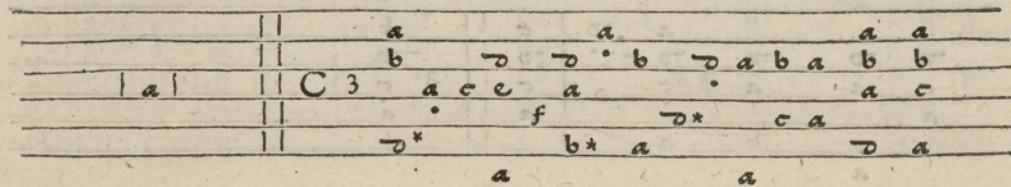 a a a a
b d d b d a b a b b
a C 3 a c e a a c
f d* c a
d* b* a d a
a a